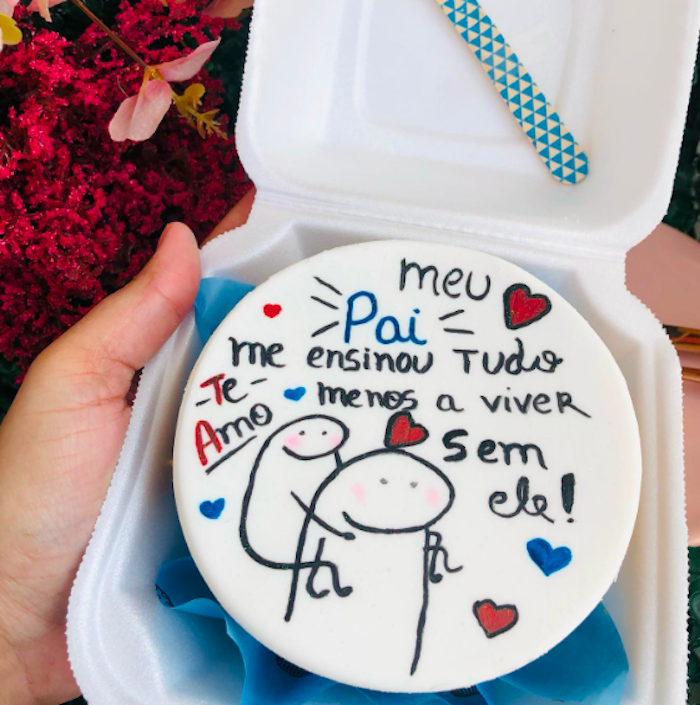 meu
Pai
me ensinou Tudo
menos a viver
sem
ele!
-Te-
Amo